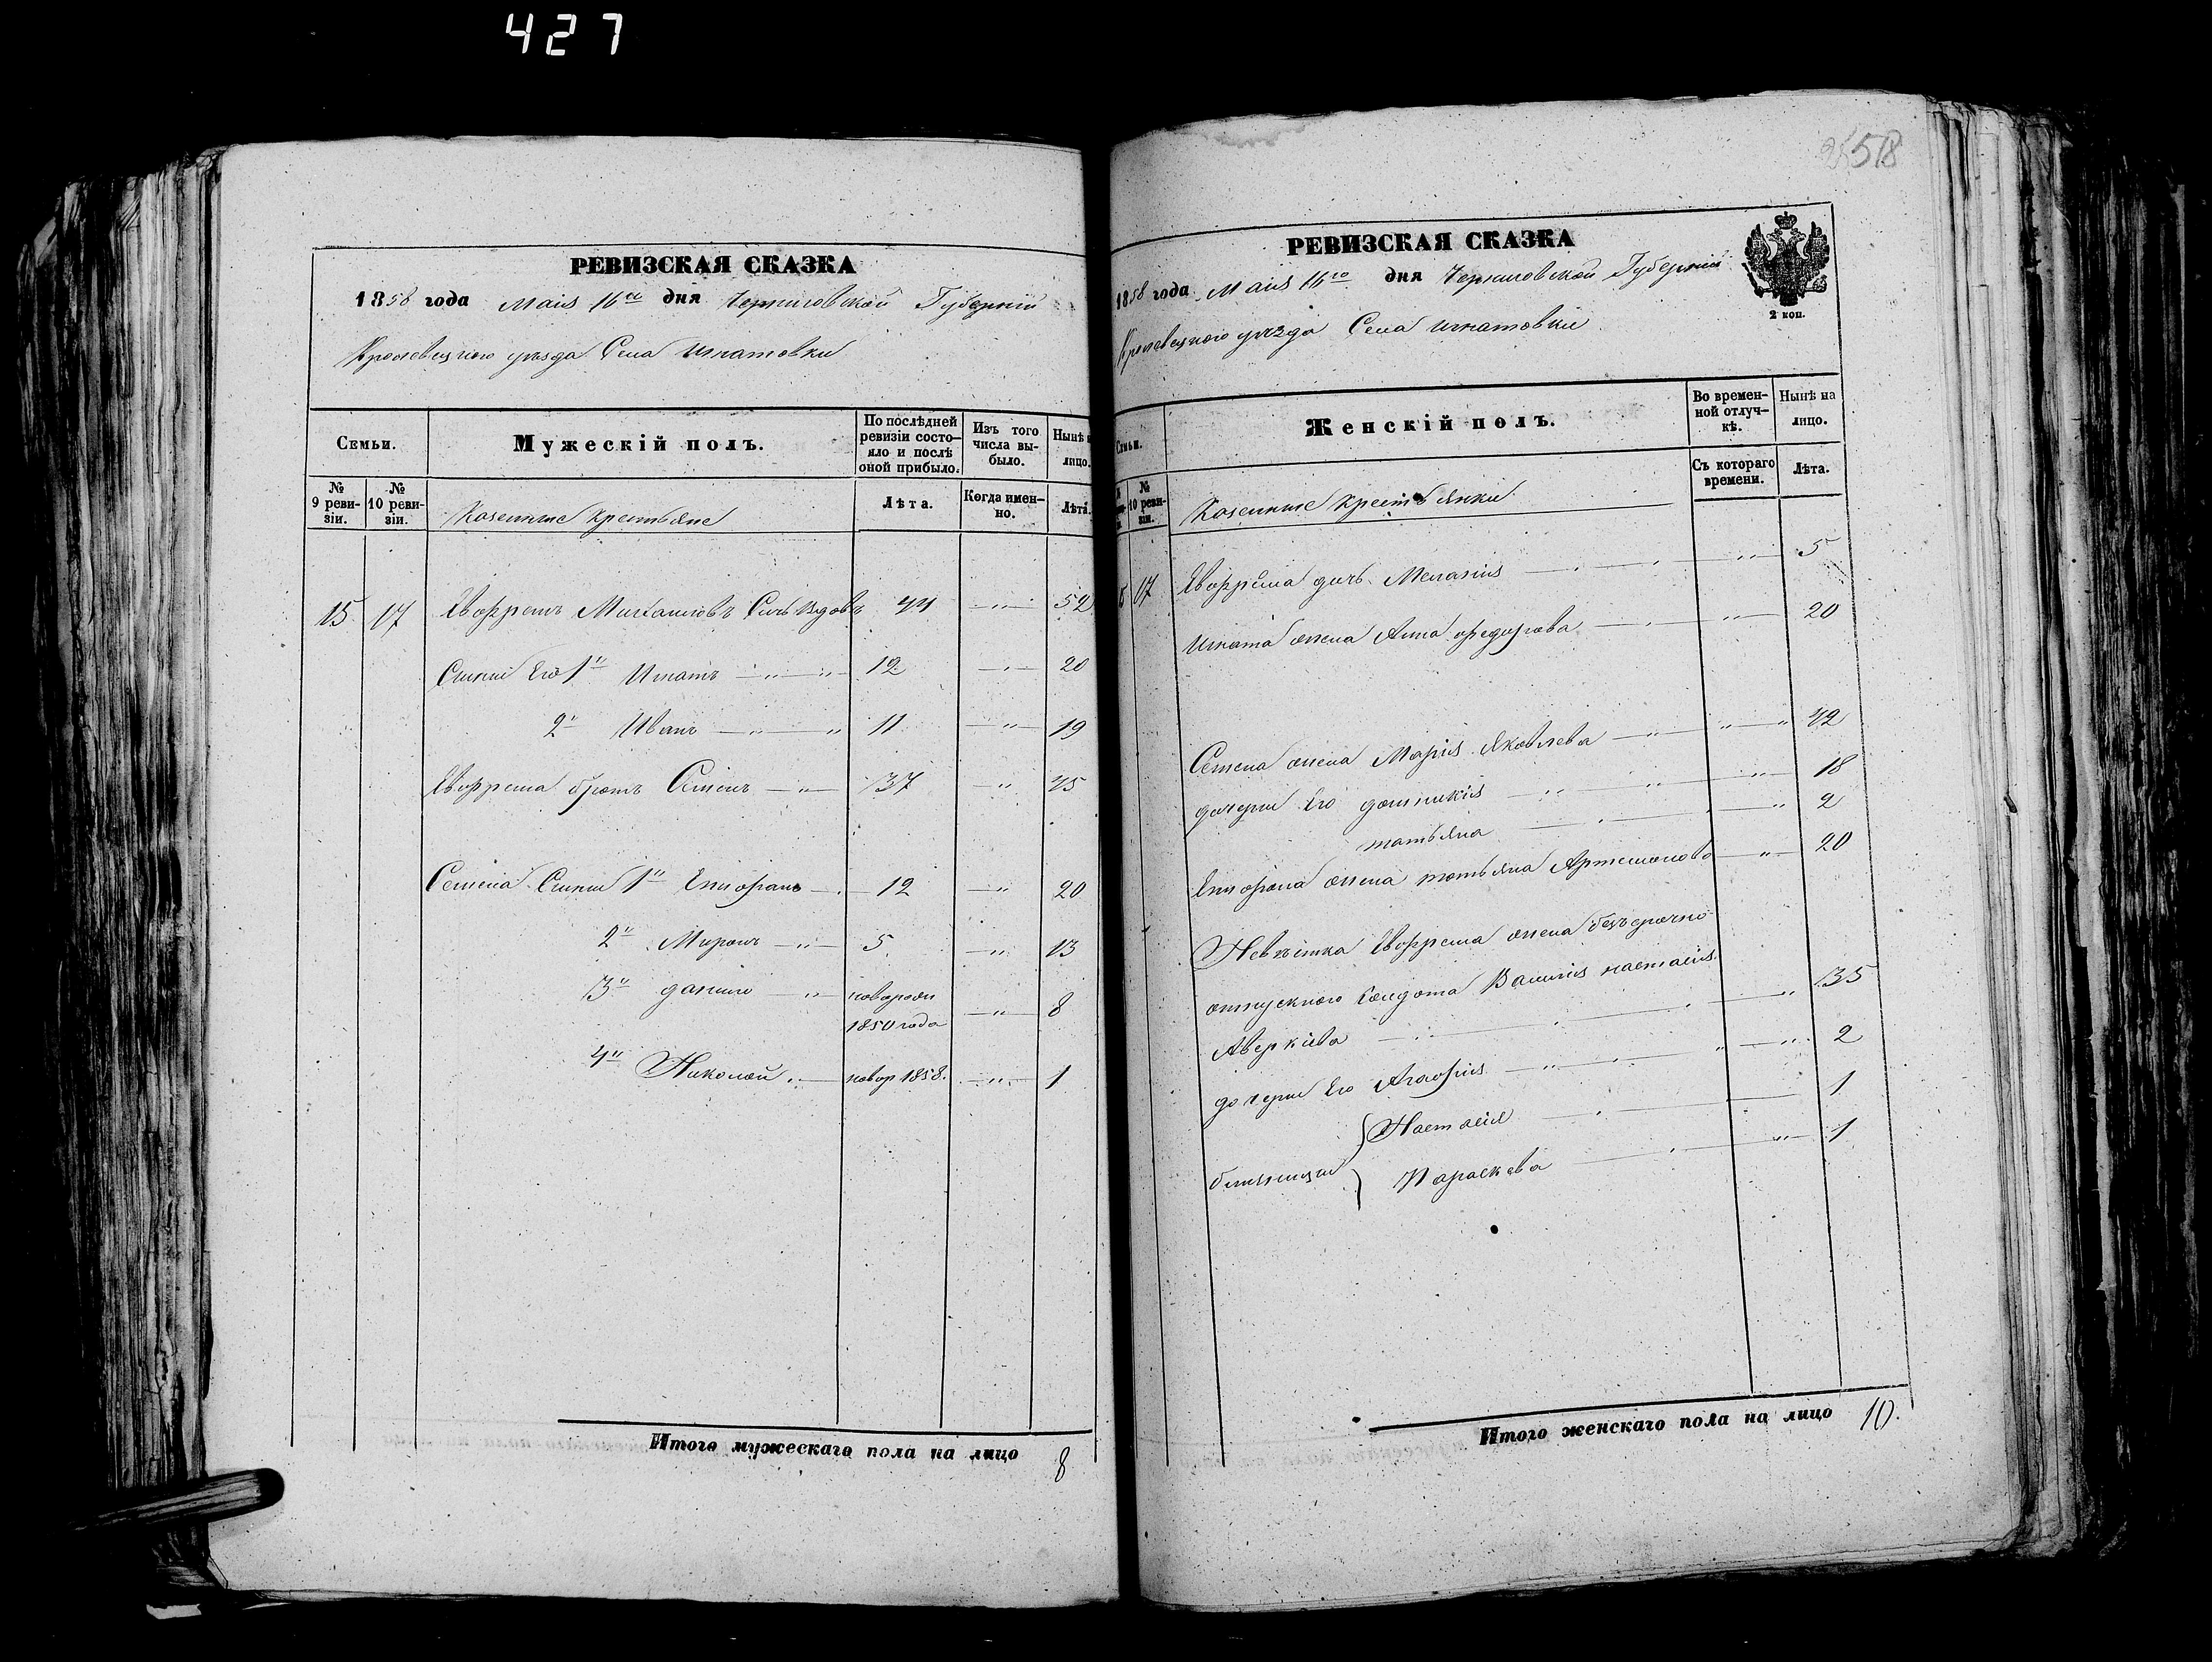 427
РЕВИЗСКАЯ СКАЗКА
1858 года Маія 16го дня Черниговской Губерніи
Кролевецкаго уѣзда Села Игнатовки
Семьи.
Мужескій полъ.
По послѣдней ревизіи состо-яло и послѣ оной прибыло.
Изъ того числа вы-было.
Нынѣ н лицо.
№ 9 реви-зіи.
№ 10 реви-зіи.
Казенные крестьяне
Лѣта.
Когда имен-но.
Лѣта.
15 17 Евфремъ Михайловъ Сынъ Вдовъ 44 — " — 52
Сыны Его 1й Игнатъ — " — " — 12 — " — 20
2й Иванъ — " — " 11 — " — 19
Евфрема братъ Семенъ — " — 37 — " 45
Семена Сыны 1й Епифанъ — " — 12 — " 20
2й Миронъ — " — 5 — " 13
3й данило " — новорож
1850 года — " — 8
4й Николай " — новор 1858. — " — 1
Итого мужескаго пола на лицо 8
2558
РЕВИЗСКАЯ СКАЗКА
1858 года Маія 16го дня Черниговской Губерніи
2 коп.
Кролевецкаго уѣзда Села Игнатовки
Семьи.
Женскій полъ.
Во времен-ной отлуч-кѣ.
Нынѣ на лицо.
10 реви-зіи.
Казенные крестьянки
Съ котораго времени.
Лѣта.
17 Евфрема дочь Меланія — " — 5
Игната жена Анна федорова — " — 20
Семена жена Марія Яковлева — " — " 42
дочери Его домникія — " — 18
татьяна — " 2
Епифана жена татьяна Артемонова — " — 20
Невѣстка Евфрема жена безсрочно
отпускного Солдата Василія настасія
Аверкіева — " 35
дочери Его Агафія — " — " — 2
близнецы { Настасія — 1
Параскева — " — 1
Итого женскаго пола на лицо 10.